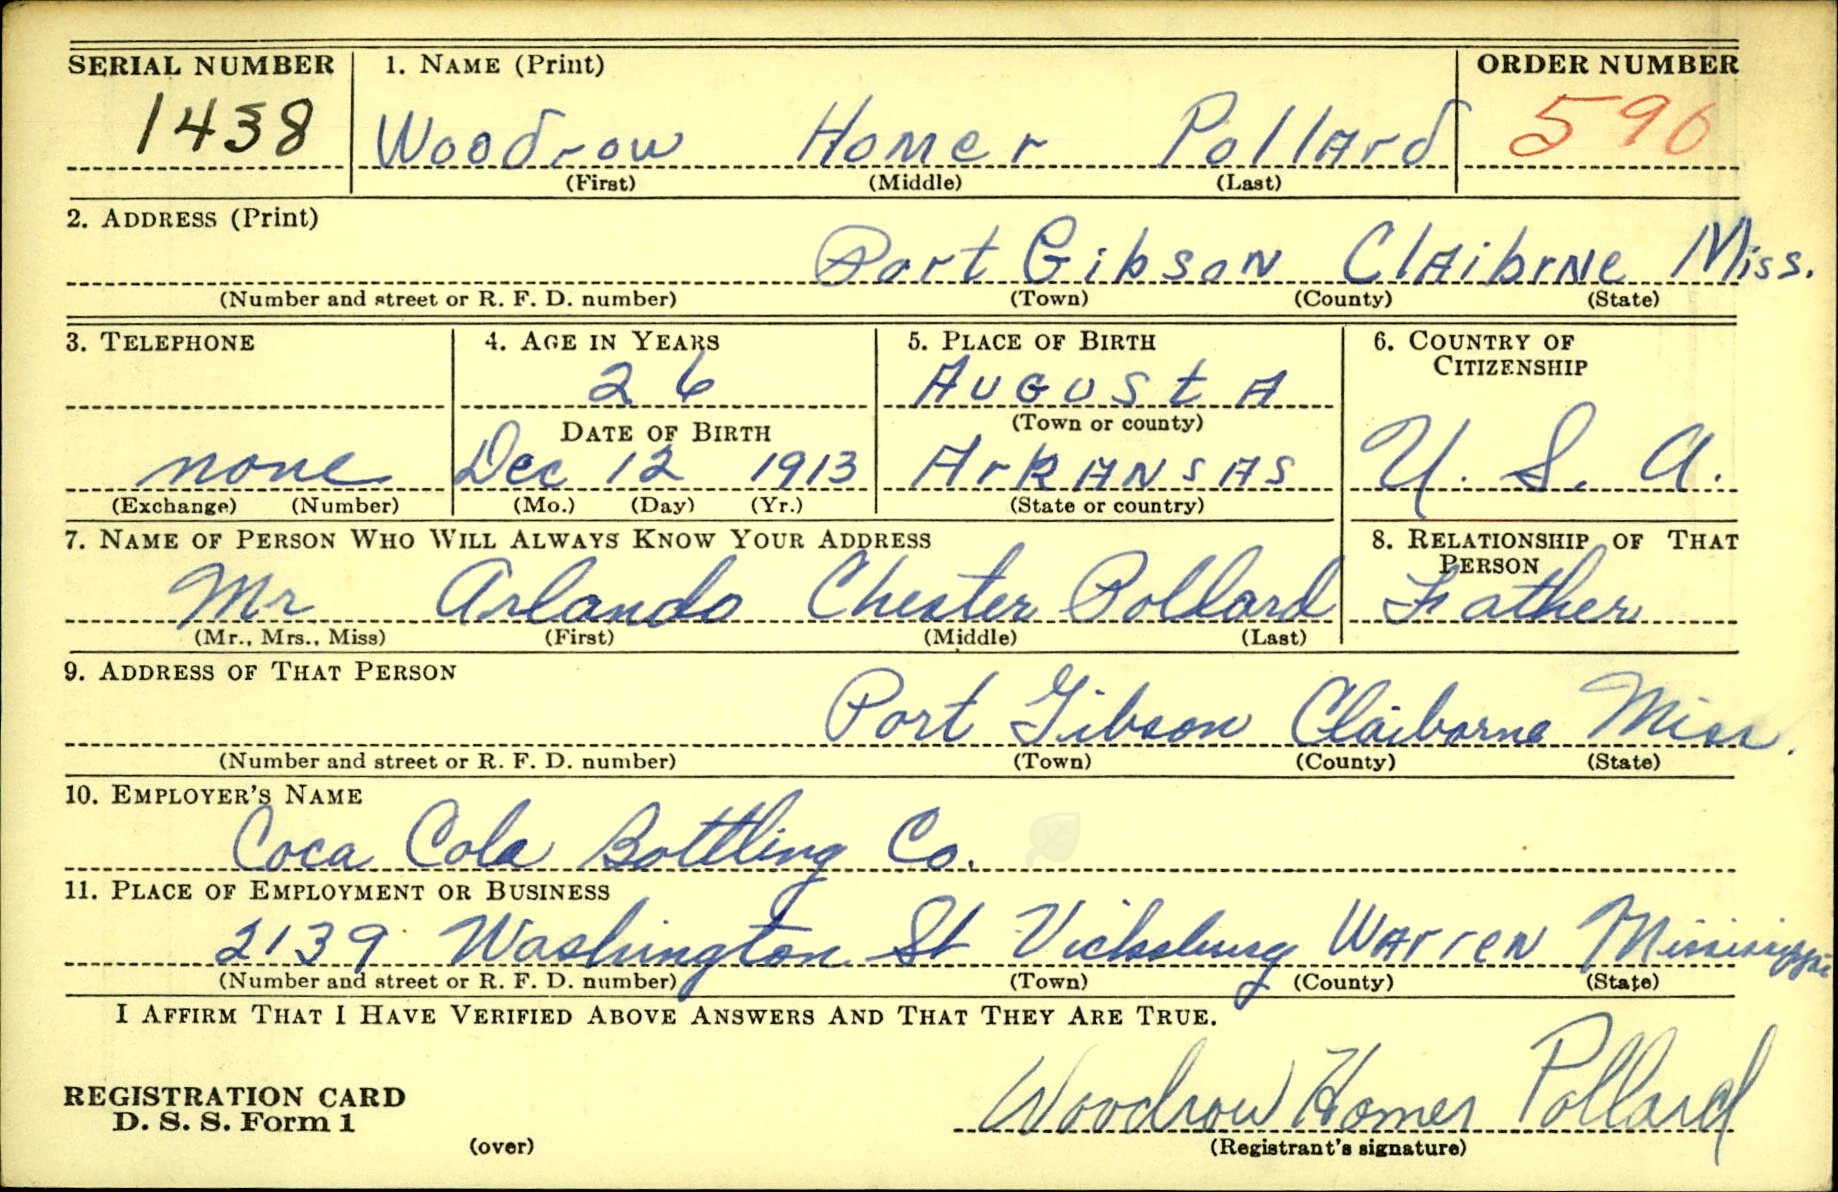 SERIAL NUMBER 1. NAME (Print) ORDER NUMBER
1438 Woodrow Homer Pollard 596
(First) (Middle) (Last)
2. ADDRESS (Print)
Port Gibson Claibrne Miss.
(Number and street or R. F. D. number) (Town) (County) (State)
3. TELEPHONE 4. AGE IN YEARS 5. PLACE OF BIRTH 6. COUNTRY OF
CITIZENSHIP
26 AUGUStA
DATE OF BIRTH (Town or county)
none Dec 12 1913 ArKANSAS U. S. A.
(Exchange) (Number) (Mo.) (Day) (Yr.) (State or country)
7. NAME OF PERSON WHO WILL ALWAYS KNOW YOUR ADDRESS 8. RELATIONSHIP OF THAT
PERSON
Mr Arlando Chester Pollard Father
(Mr., Mrs., Miss) (First) (Middle) (Last)
9. ADDRESS OF THAT PERSON
Port Gibson Claiborne Miss.
(Number and street or R. F. D. number) (Town) (County) (State)
10. EMPLOYER'S NAME
Coca Cola Bottling Co.
11. PLACE OF EMPLOYMENT OR BUSINESS
2139 Washington St Vicksburg WArreN Mississippi
(Number and street or R. F. D. number) (Town) (County) (State)
I AFFIRM THAT I HAVE VERIFIED ABOVE ANSWERS AND THAT THEY ARE TRUE.
REGISTRATION CARD
D. S. S. Form 1
Woodrow Homer Pollard
(over) (Registrant's signature)